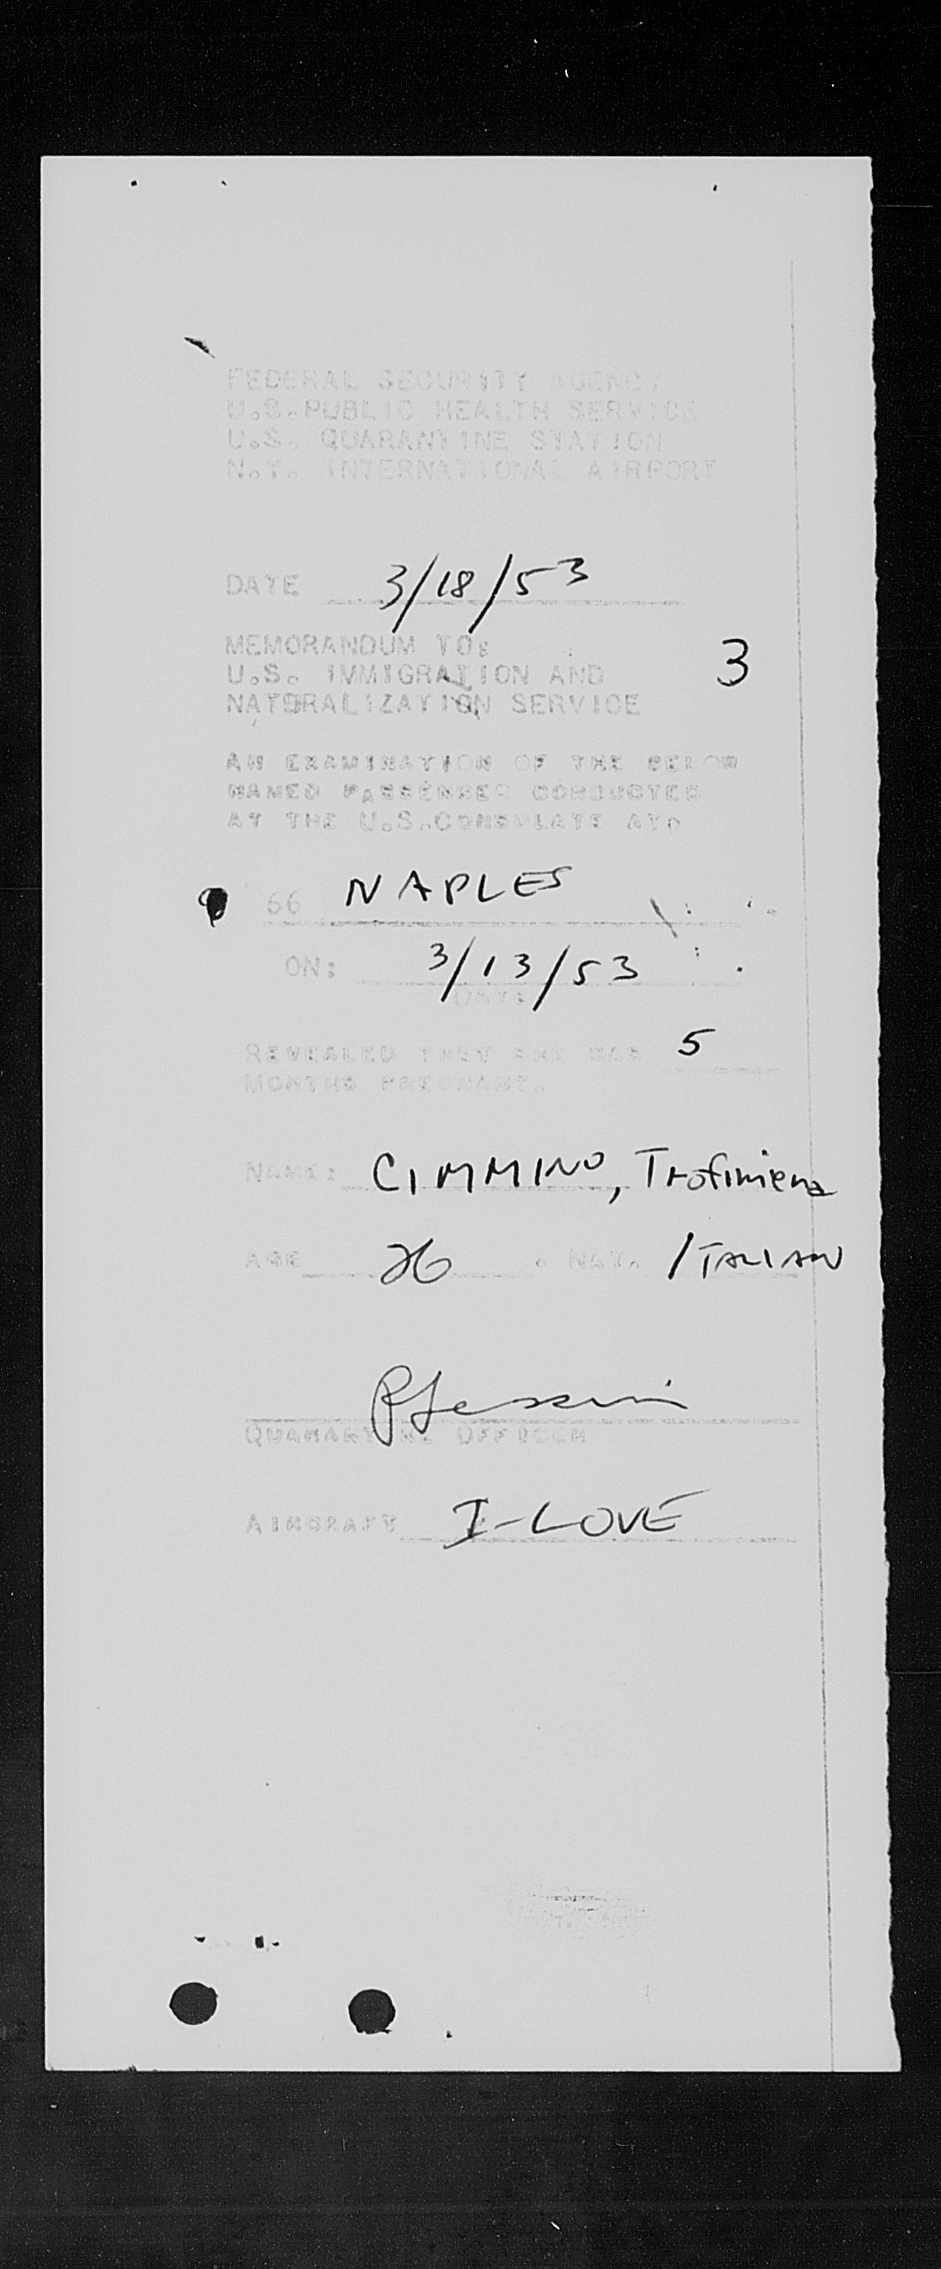 FEDERAL SECURITY AGENCY
U.S. PUBLIC HEALTH SERVICE
U.S. QUARANTINE STATION
N.Y. INTERNATIONAL AIRPORT
DATE 3/18/53
MEMORANDUM TO:
3
U.S. IMMIGRATION AND
NATURALIZATION SERVICE
AN EXAMINATION OF THE BELOW
NAMED PASSENGER CONDUCTED
AT THE U.S. CONSULATE AT:
66 NAPLES
ON: 3/13/53
DATE:
REVEALED THAT SHE WAS 5
MONTHS PREGNANT.
NAME: CIMMINO, Trofimena
AGE 26 . NAT. ITALIAN
QUARANTINE OFFICER
AIRCRAFT I-LOVE